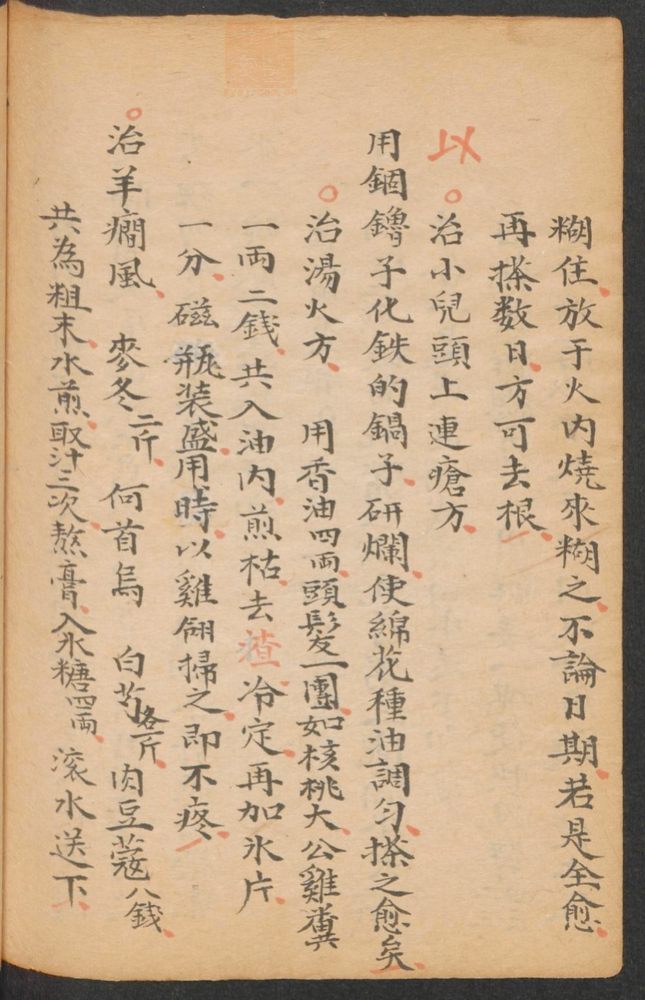 糊住放于火内燒來糊之不論日期若是全愈
再搽数日方可去根
以
治小兒頭上連瘡方
用錮鑥子化鉄的鍋子研爛使綿花種油調匀搽之愈矣
治湯火方 用香油四両頭髮一團如核桃大公雞糞
一両二錢共入油内煎枯去渣冷定再加氷片
一分磁瓶装盛用時以雞翎掃之即不疼
治羊癇風 麥冬二斤 何首烏 白芍各一斤 肉豆蔻八錢
共為粗末水煎取汁三次熬膏入氷糖四両 滚水送下